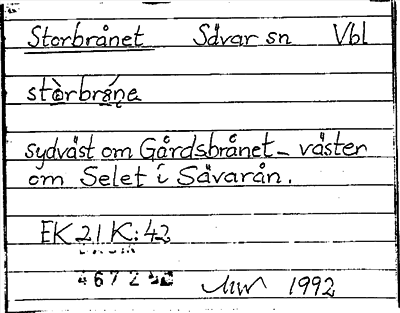 Storbrånet Sävar sn Vbl
stòrbrá̊ne
sydväst om Gårdsbrånet – väster
om Selet i Sävarån.
EK 21 K: 42
1992